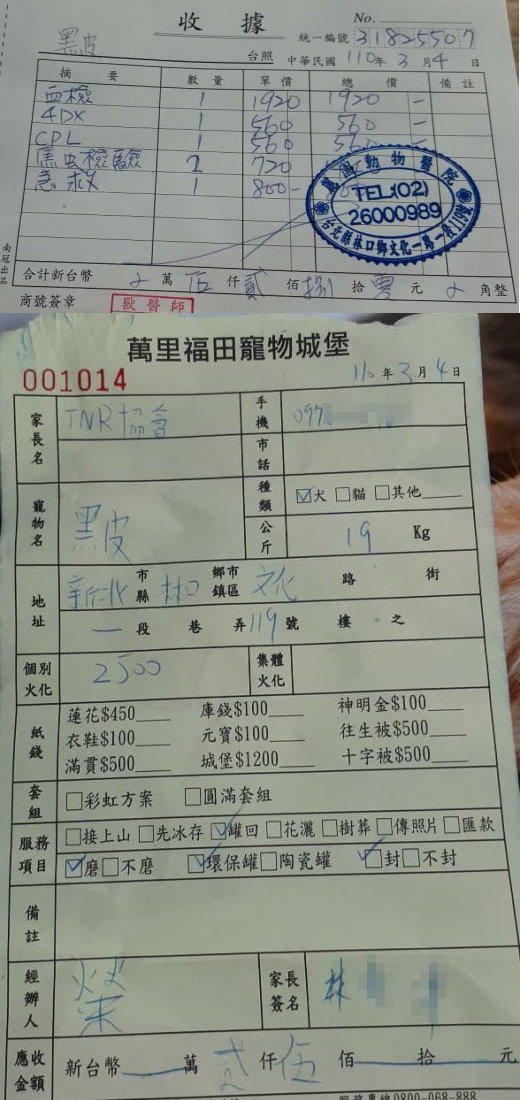 收據
No.
黑皮
統一編號 31825507
台照 中華民國 110年 3月 4日
摘要 數量 單價 總價 備註
血檢 1 1920 1920 —
4DX 1 560 560 —
CPL 1 560 560 —
焦虫檢驗 2 720
急救 1 800-
動物醫院
TEL:(02)
26000989
台北縣林口鄉文化一路一段119號
合計新台幣 萬 伍仟 貳佰 捌拾 零元 角整
南冠出品
商號簽章
獸醫師
萬里福田寵物城堡
001014
110年3月4日
家長名 TNR協會 手機 097
市話
寵物名 黑皮 種類 ☑犬 □貓 □其他
公斤 19 Kg
地址 新北 市縣 林口 鄉市鎮區 文化 路 街
一段 巷 弄 119號 樓 之
個別火化 2500 集體火化
紙錢 蓮花$450 庫錢$100 神明金$100
衣鞋$100 元寶$100 往生被$500
滿貫$500 城堡$1200 十字被$500
套組 □彩虹方案 □圓滿套組
服務項目 □接上山 □先冰存 ☑罐回 □花灑 □樹葬 □傳照片 □匯款
☑磨 □不磨 ☑環保罐 □陶瓷罐 ☑封 □不封
備註
經辦人 家長簽名 林
應收金額 新台幣 萬 貳仟 伍佰 拾 元
服務專線0800-068-888